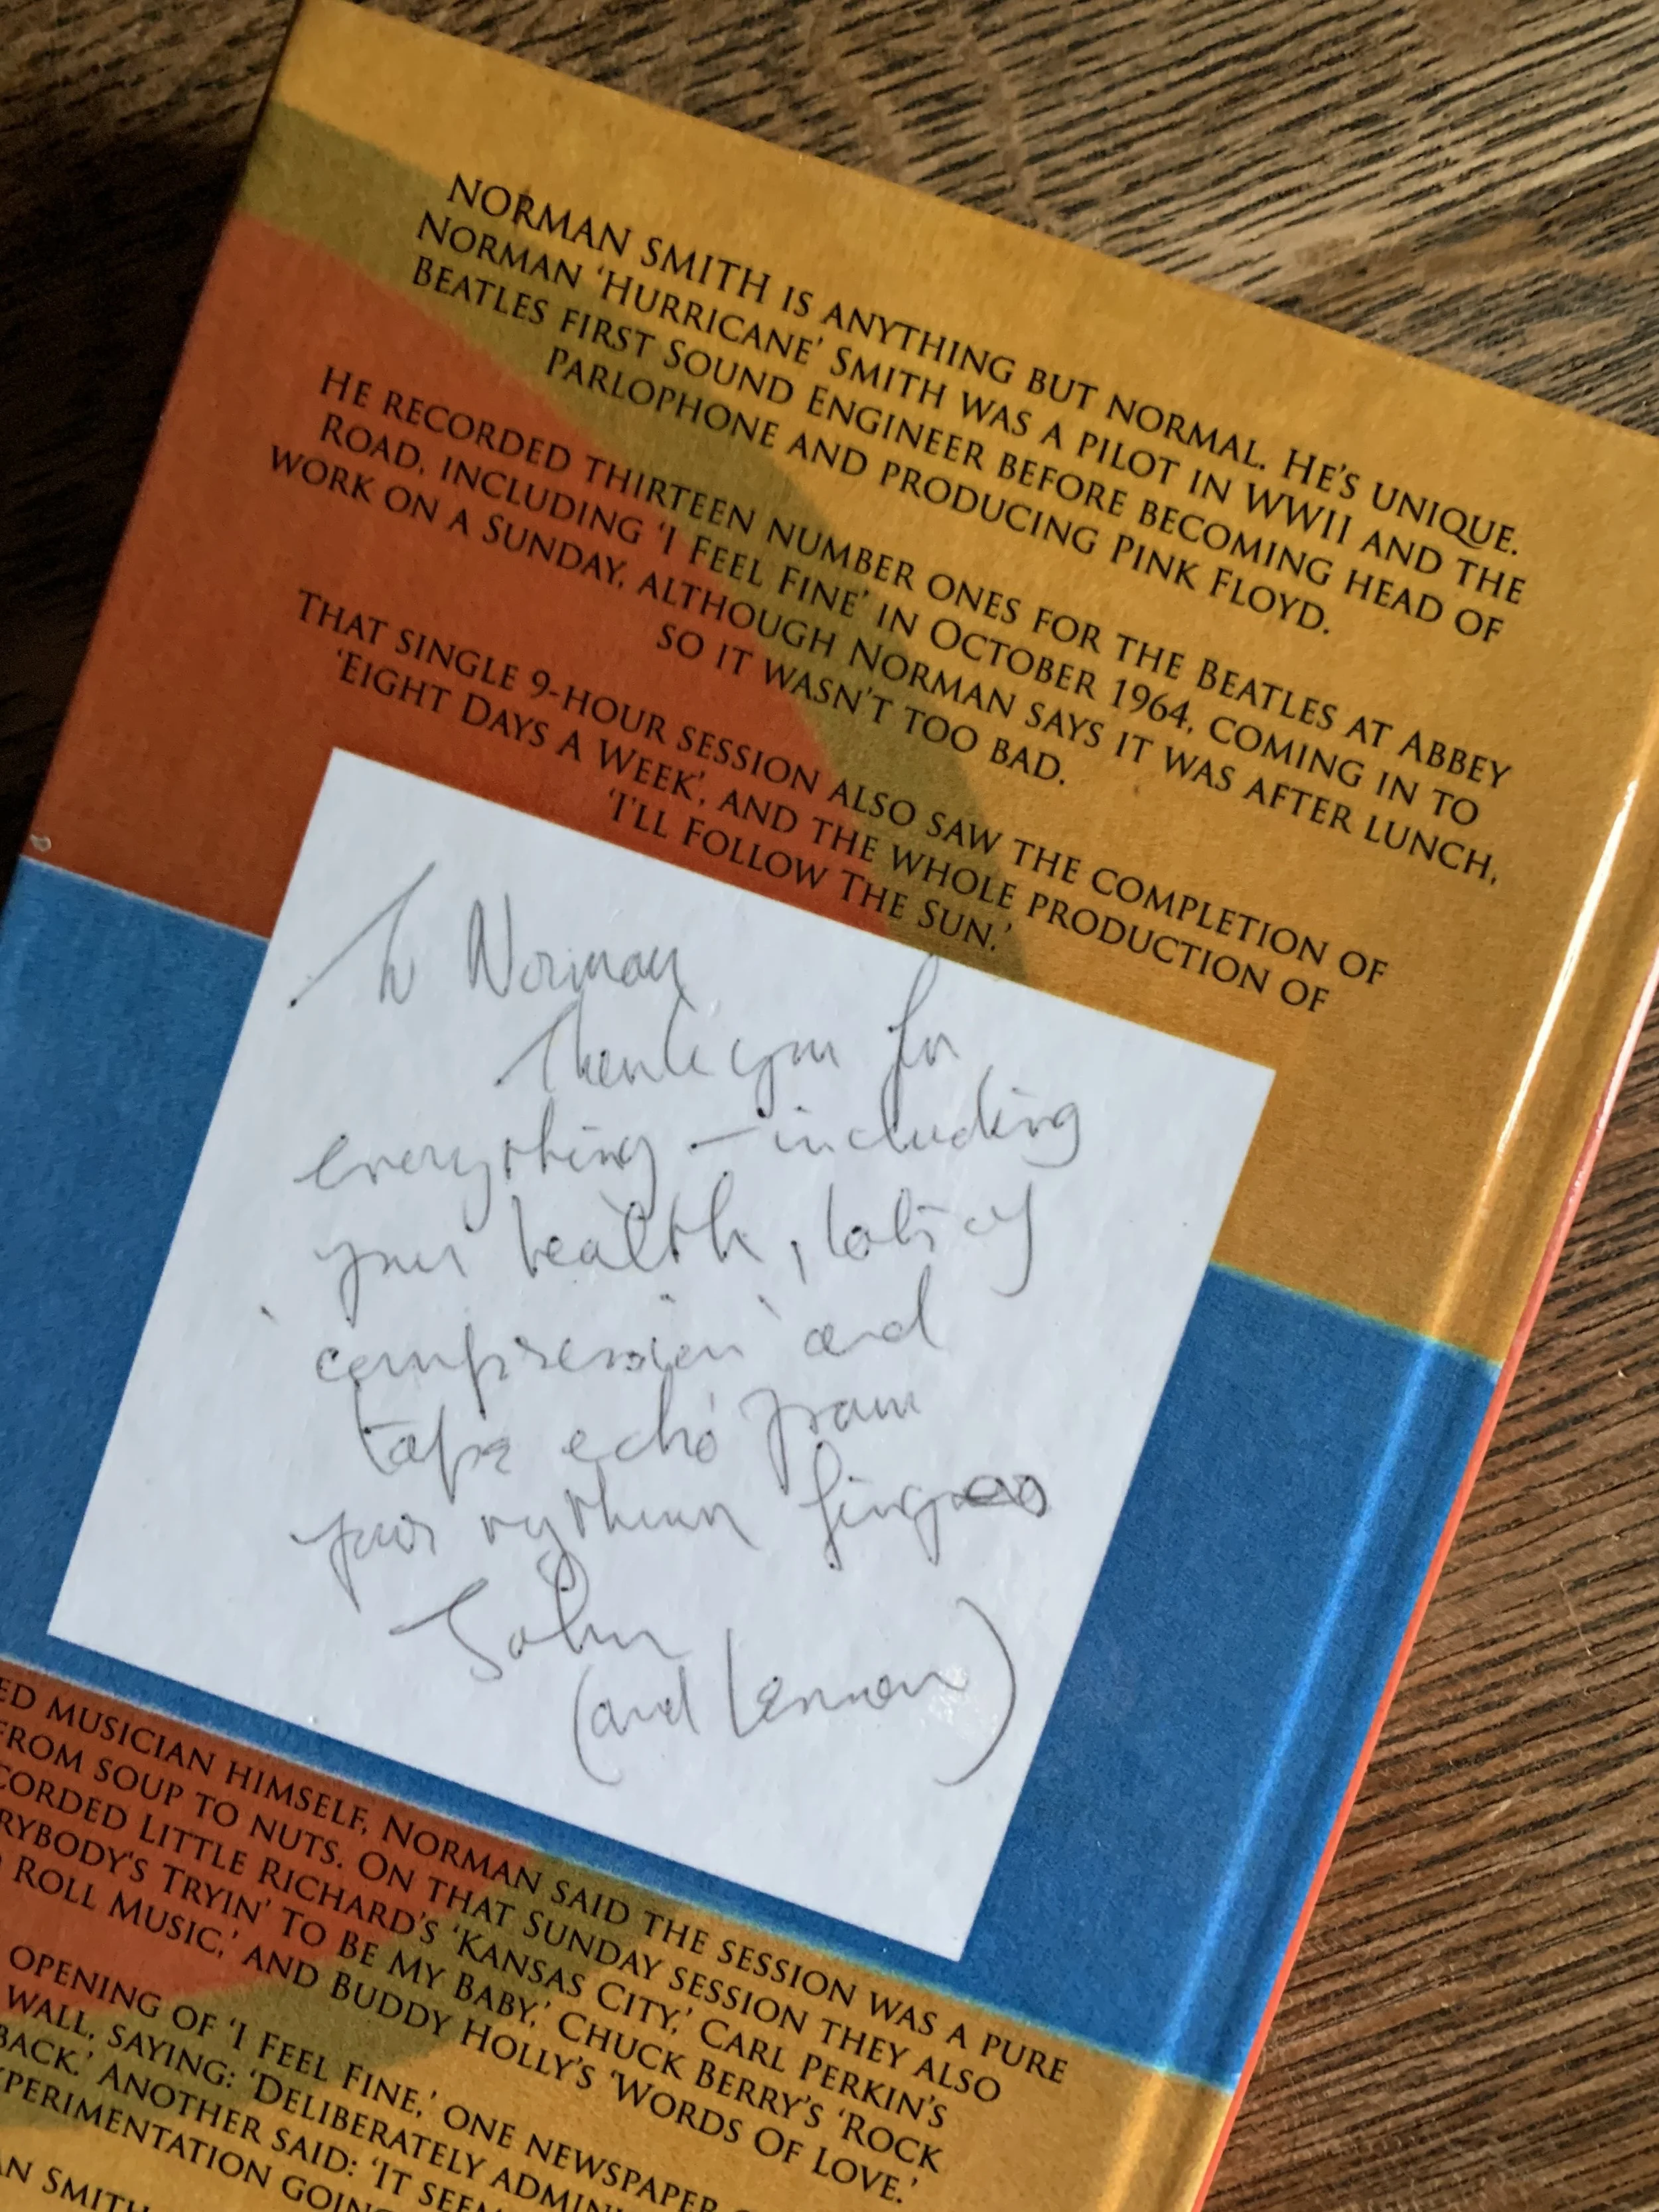 NORMAN SMITH IS ANYTHING BUT NORMAL. HE'S UNIQUE.
NORMAN 'HURRICANE' SMITH WAS A PILOT IN WWII AND THE
BEATLES FIRST SOUND ENGINEER BEFORE BECOMING HEAD OF
PARLOPHONE AND PRODUCING PINK FLOYD.
HE RECORDED THIRTEEN NUMBER ONES FOR THE BEATLES AT ABBEY
ROAD, INCLUDING 'I FEEL FINE' IN OCTOBER 1964, COMING IN TO
WORK ON A SUNDAY, ALTHOUGH NORMAN SAYS IT WAS AFTER LUNCH,
SO IT WASN'T TOO BAD.
THAT SINGLE 9-HOUR SESSION ALSO SAW THE COMPLETION OF
'EIGHT DAYS A WEEK', AND THE WHOLE PRODUCTION OF
'I'LL FOLLOW THE SUN.'
To Norman
Thank you for
everything – including
your health, lots of
'compression' and
tape echo from
your rythmn fingers
John
(and Lennon)
ED MUSICIAN HIMSELF, NORMAN SAID THE SESSION WAS A PURE
FROM SOUP TO NUTS. ON THAT SUNDAY SESSION THEY ALSO
CORDED LITTLE RICHARD'S 'KANSAS CITY,' CARL PERKIN'S
RYBODY'S TRYIN' TO BE MY BABY,' CHUCK BERRY'S 'ROCK
ROLL MUSIC,' AND BUDDY HOLLY'S 'WORDS OF LOVE.'
OPENING OF 'I FEEL FINE,' ONE NEWSPAPER
WALL, SAYING: 'DELIBERATELY ADMINI
BACK.' ANOTHER SAID: 'IT SEEM
XPERIMENTATION GOING
AN SMITH